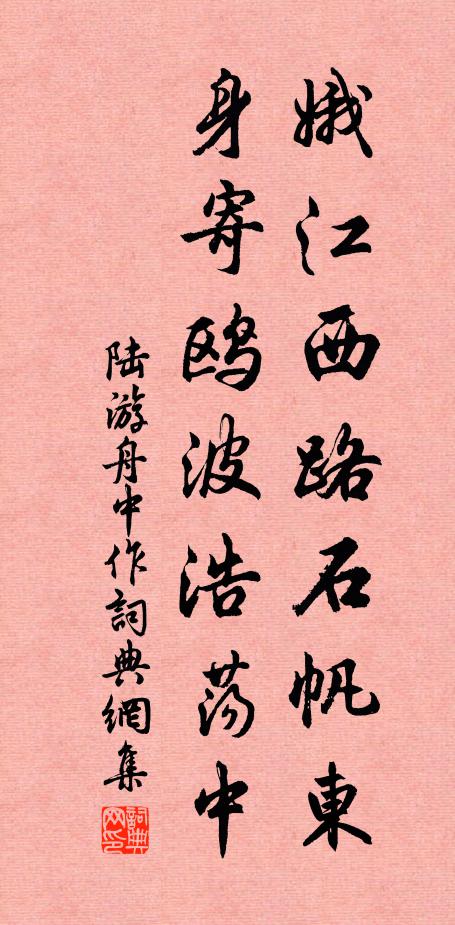 娥江西路石帆東
身寄鸥波浩荡中
陆游舟中作詞典網集
詞典网印